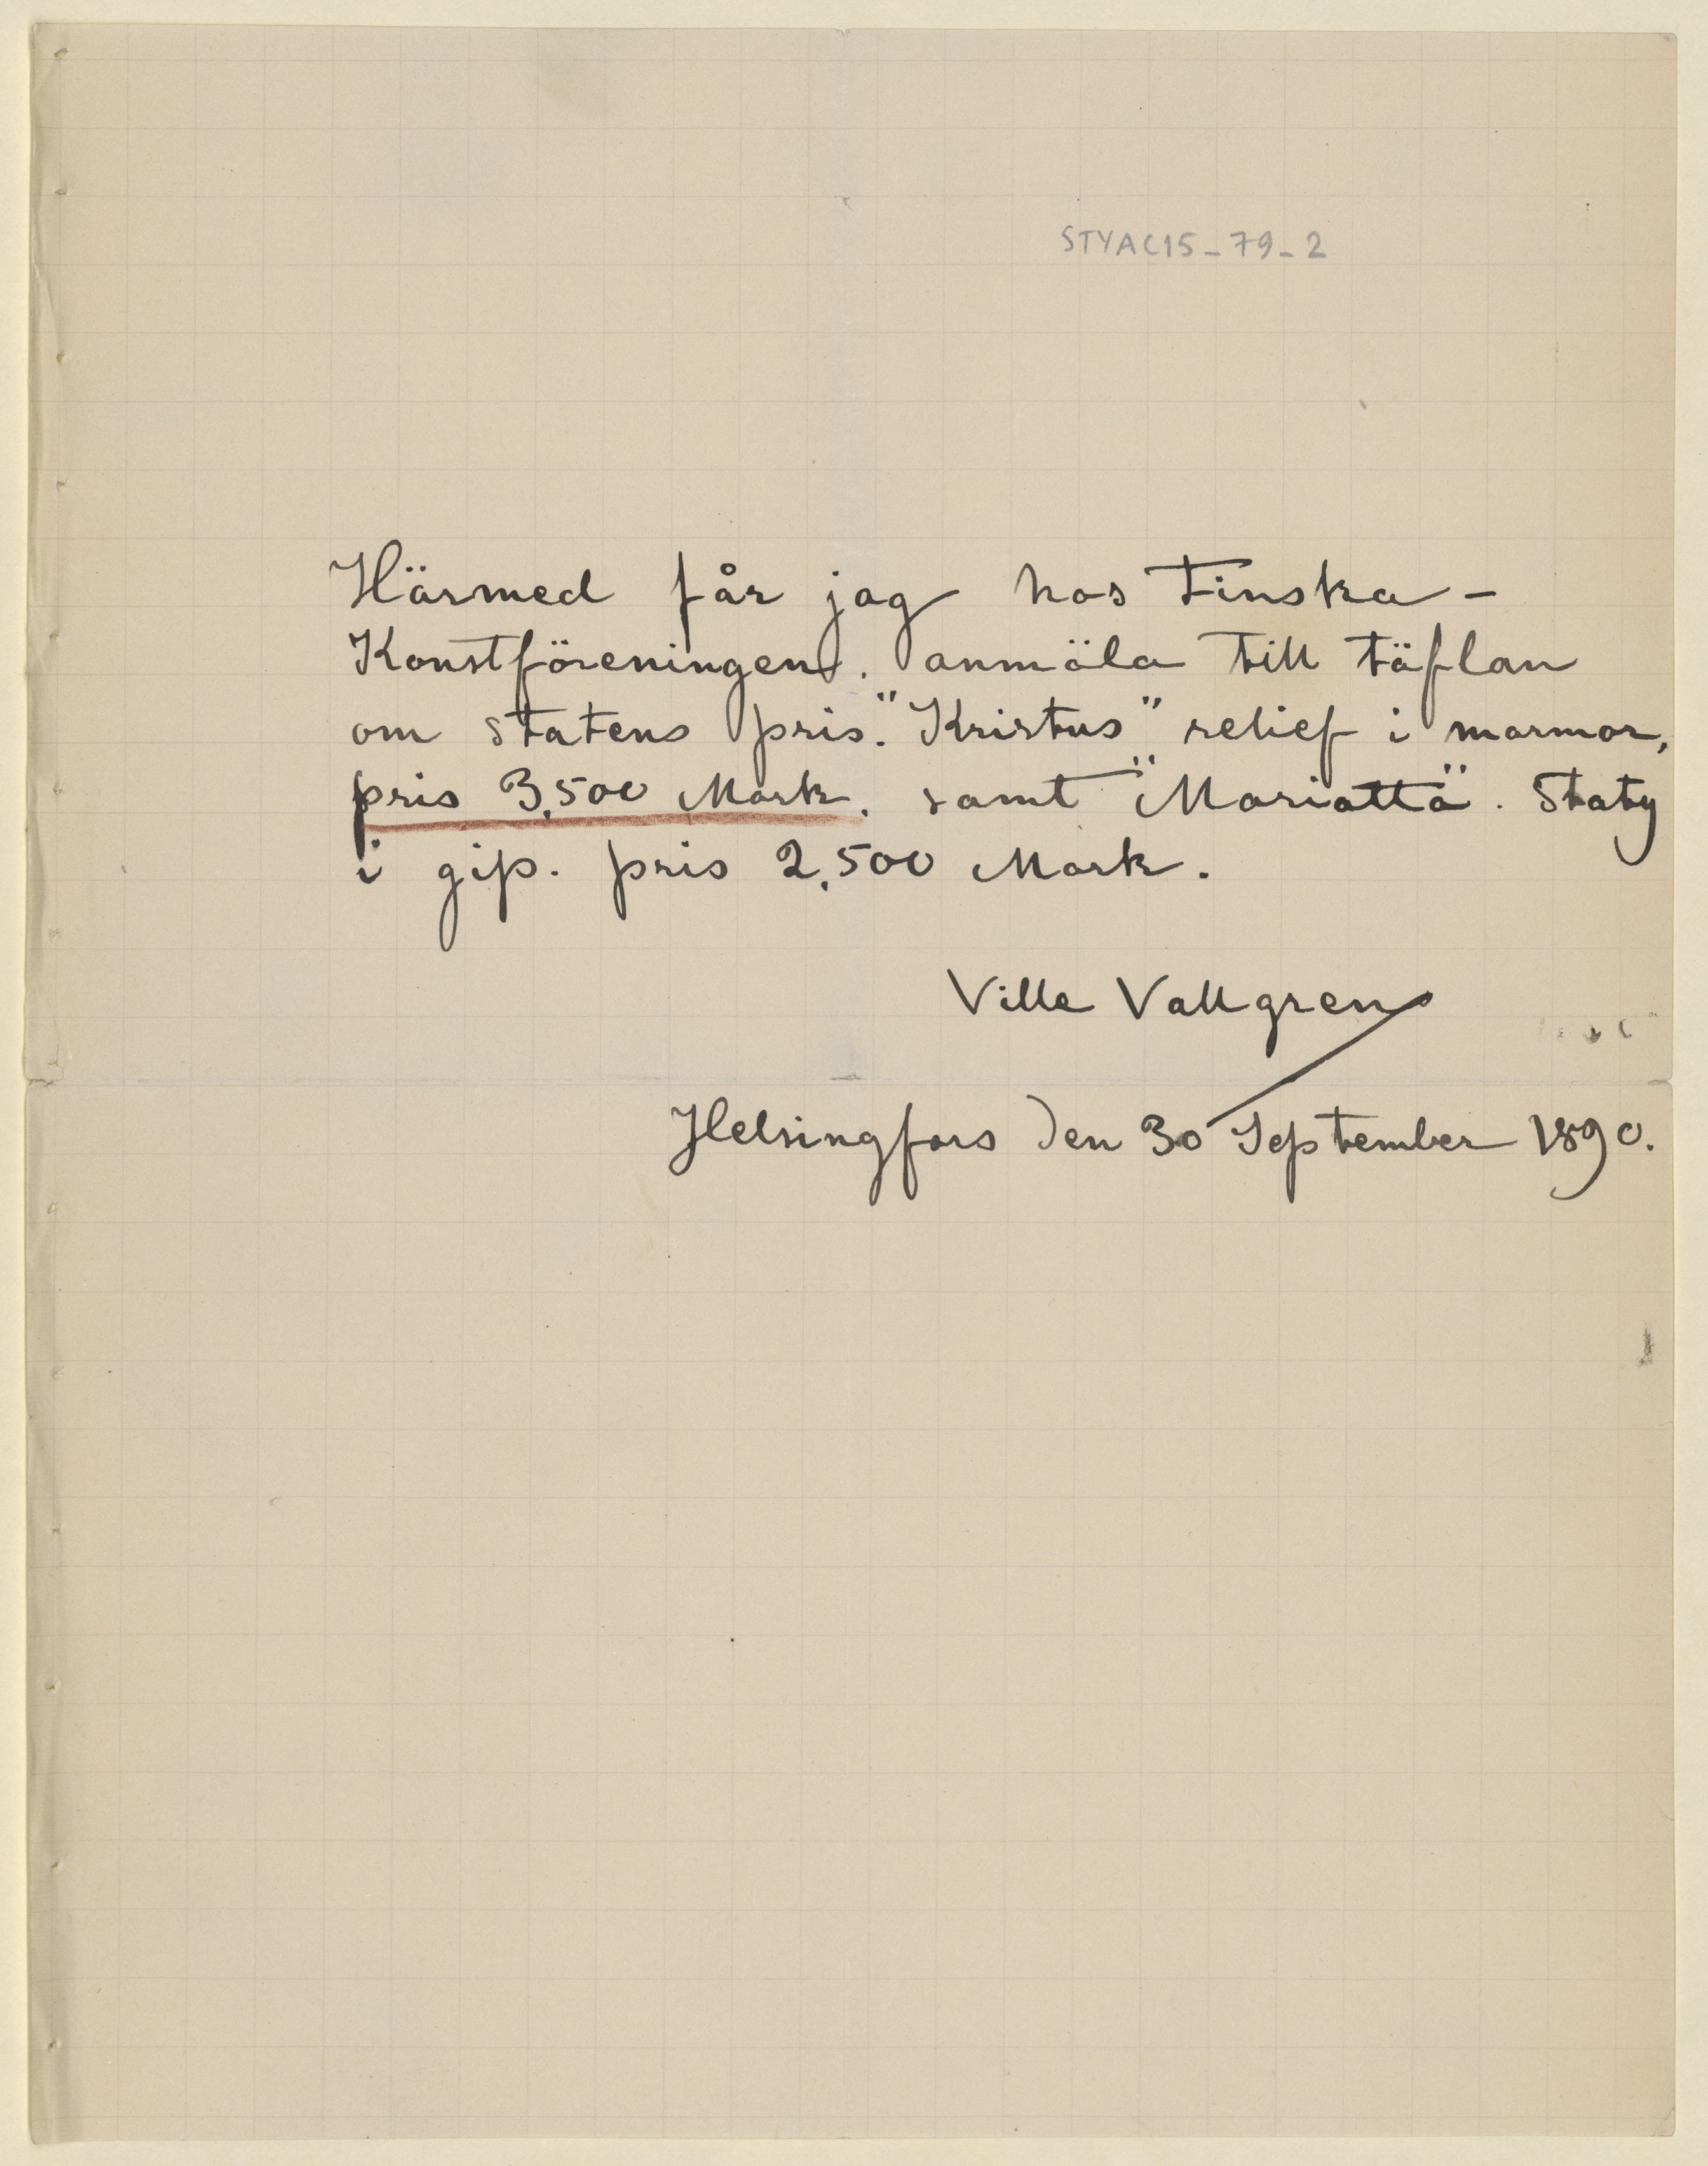 STYAC15_79_2
Härmed får jag hos Finska-
Konstföreningen. anmäla till täflan
om statens pris. "Kristus" relief i marmor,
pris 3,500 Mark. samt "Mariatta". Staty
i gip. pris 2,500 Mark.
Ville Vallgren
Helsingfors den 30 September 1890.